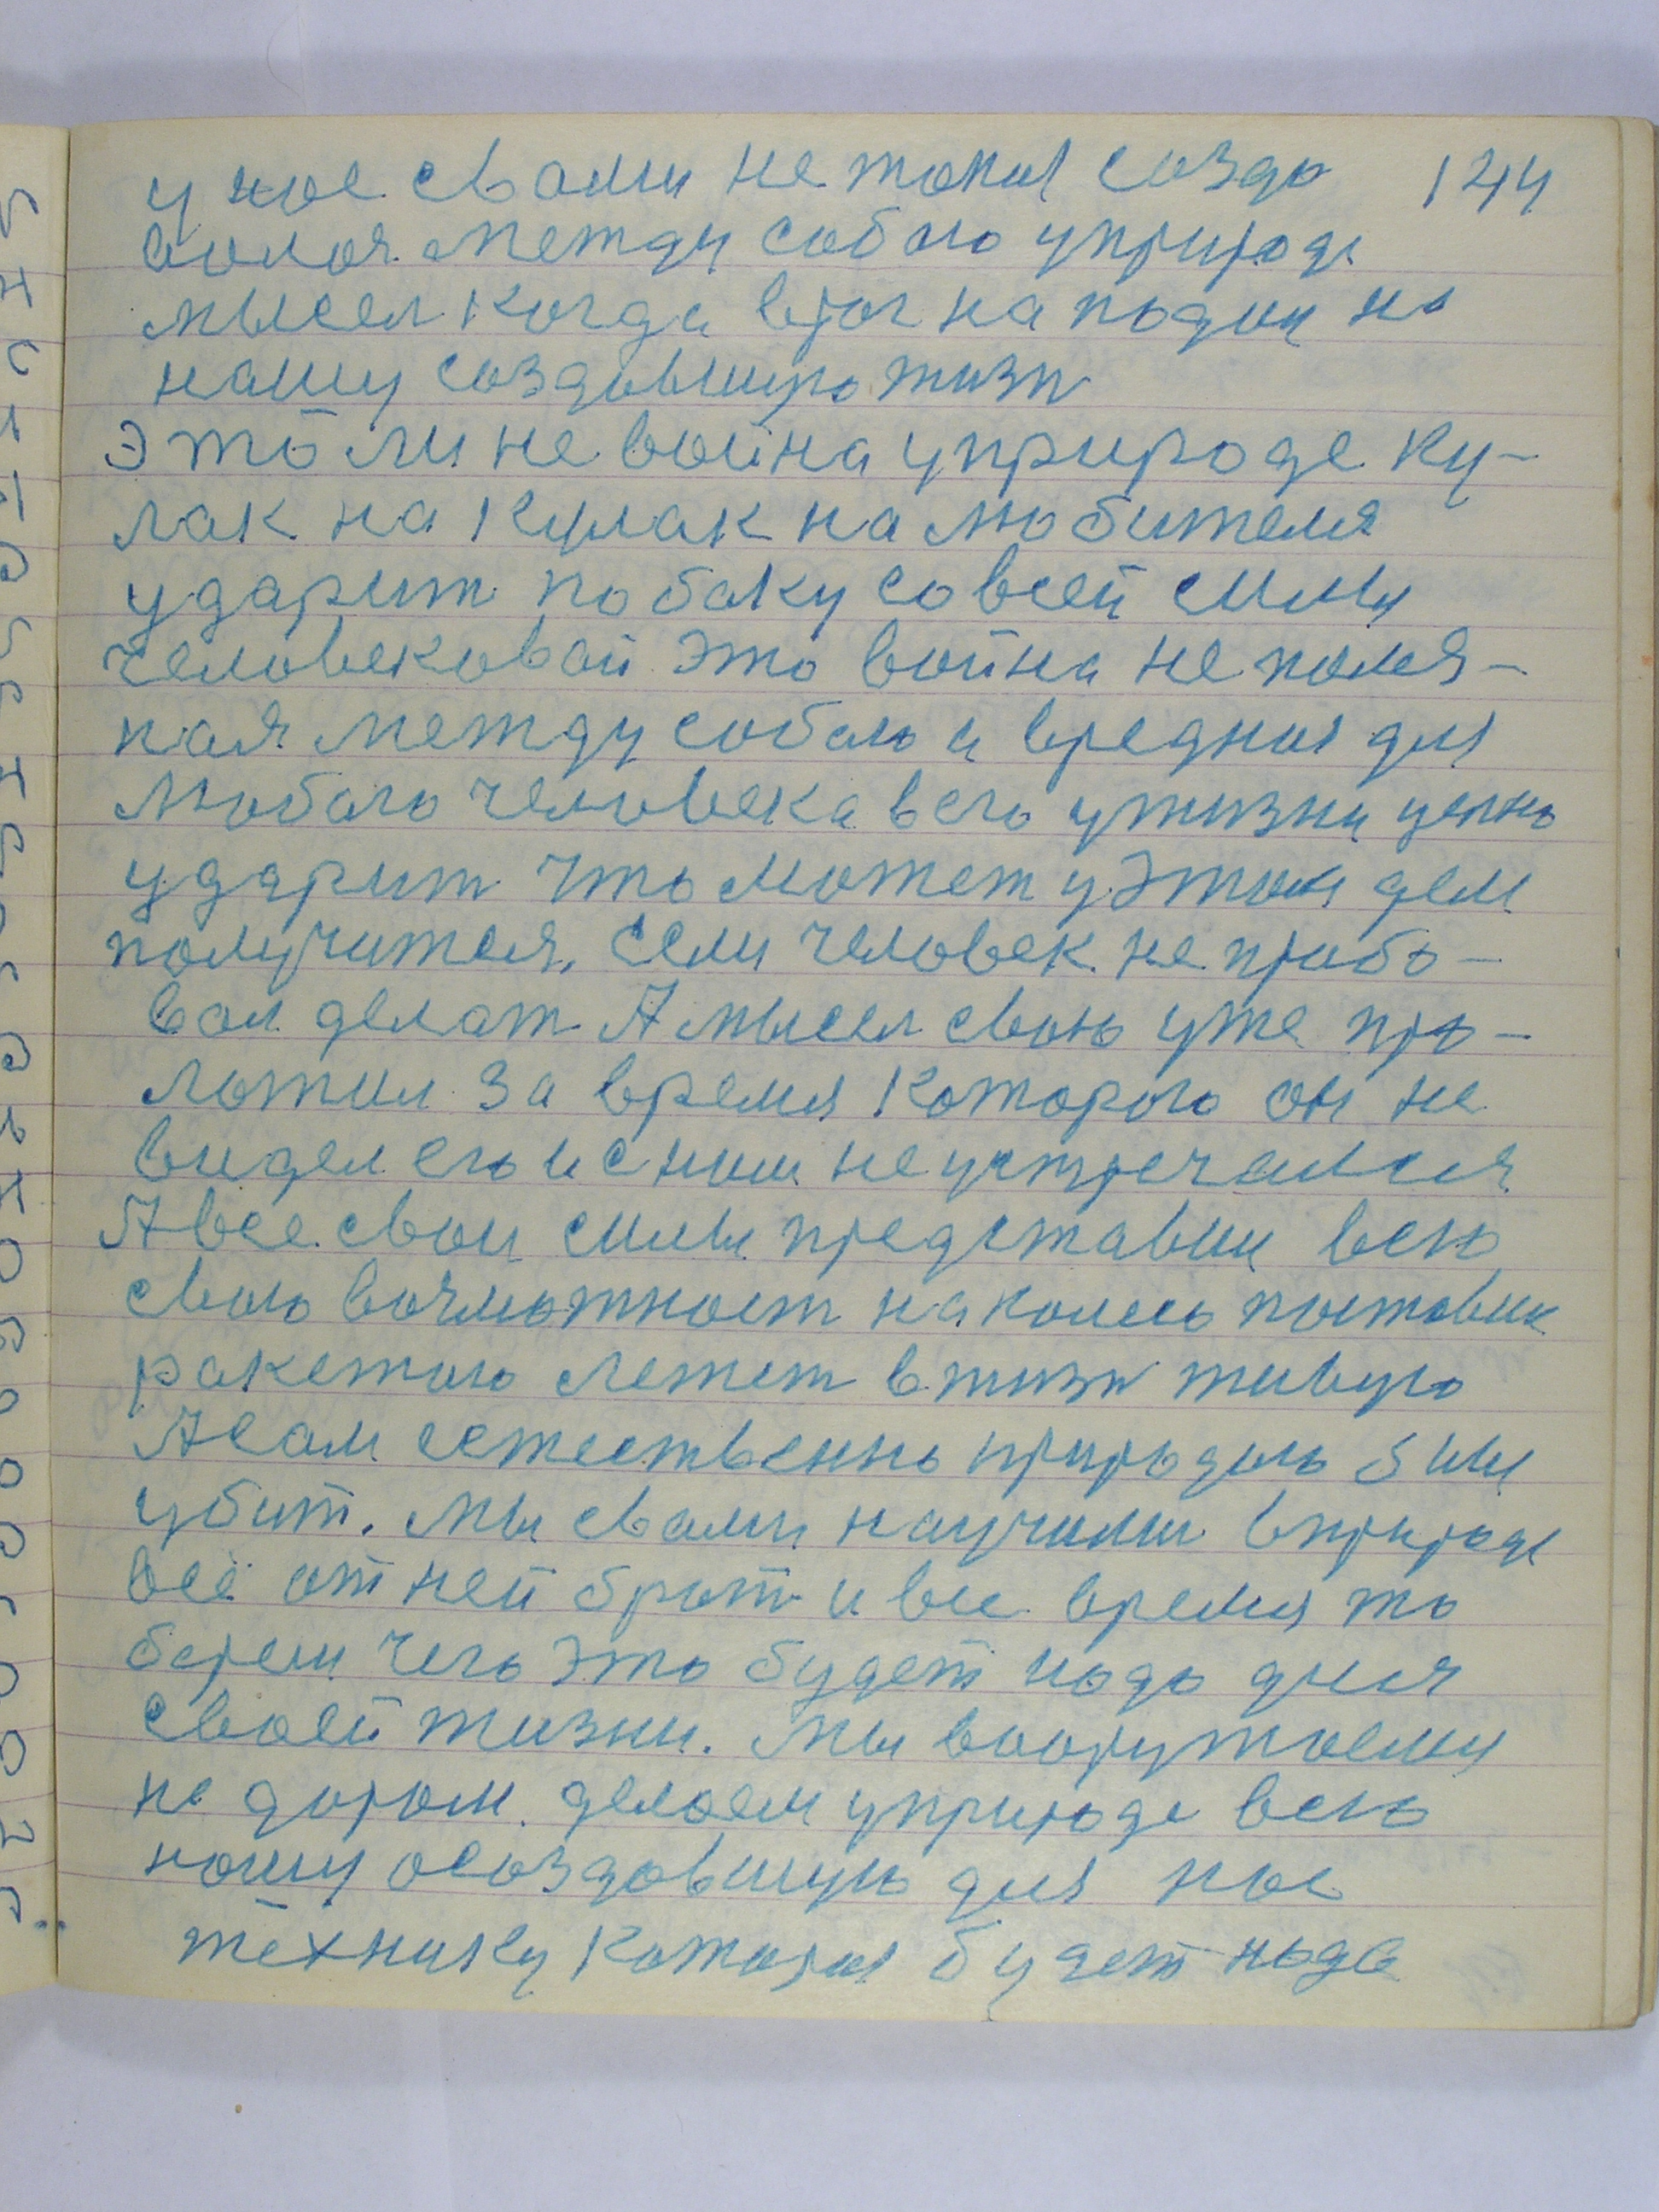 у нас свами не такия созда 144
валоя между собою уприроде
мысел когда враг нападии на
нашу создавшуюжизн
это ли не война уприроде ку-
лак на кулак на любителя
ударит побаку совсей силы
человековай это война не поля-
ная между собаю и вредная для
любого человека вего ужизни
ударит что может уэтом деле
получится, если человек не пробо-
вал делат А мысел свою уже про-
ложил за время которого он не
видел его и с ним не устречался
А все свои силы представил всю
свою вазможност на колесо поставил
ракетою летет вжизн живую
А сам естественно природою был
убит. мы свами научили вприроде
всё от ней брат и все время то
берем чего это будет надо для
своей жизни. мы вооружаемя
не даром делаем уприроде всю
нашу осоздавшую для нас
технику которая будет надо